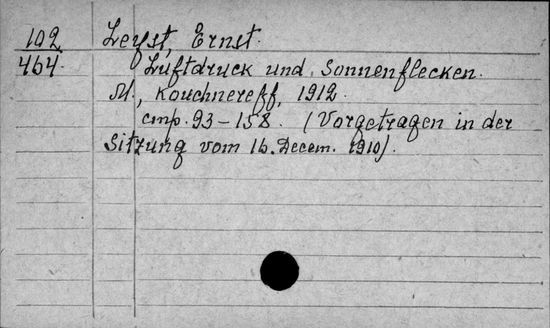 102 Leyst, Ernst.
464. Luftdruck und Sonnenflecken.
M., Kouchnereff, 1912.
стр. 93-158. (Vorgetragen in der
Sitzung vom 16. Decem. 1910).